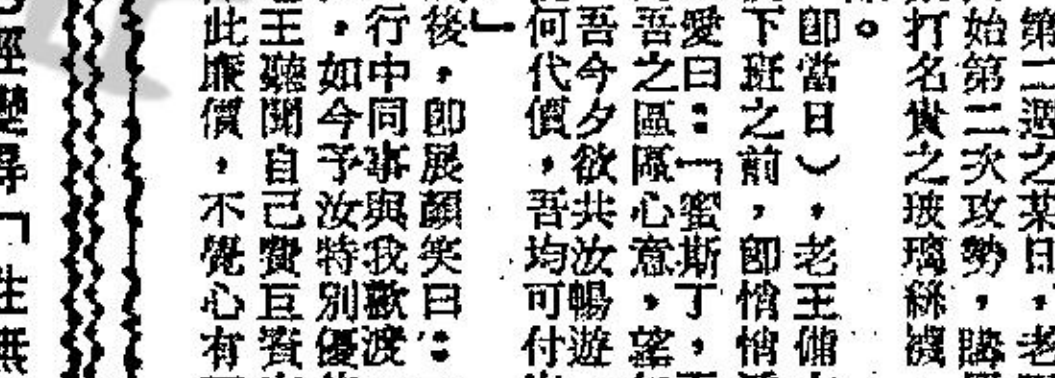 第二週之某日，老
始第二次攻勢，購
打名貴之玻璃絲襪
。
卽當日），老王備
下班之前，卽悄悄
愛曰：「蜜斯丁，
吾之區區心意，望
吾今夕欲共汝暢遊
何代價，吾均可付
」
後，卽展顏笑曰：
行中同事與我歡渡
，如今予汝特別優
王聽聞自己費巨資
此廉價，不覺心有
「生無